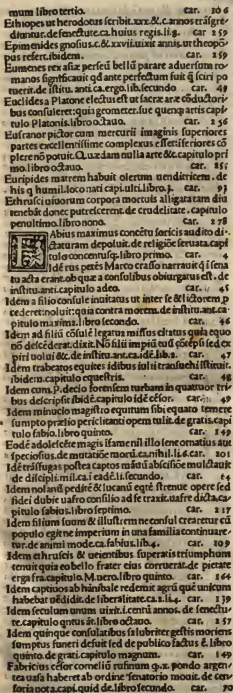 mum libro tertio. car. 106
Ethiopes ut herodotus scribit .xx.&.c. annos trāsgre
diuntur. de senectute.ca.huius regis.li.8. car. 259
Epimenides gnosius.c.&.xxvii.uixit annis.ut theopō
pus refert.ibidem. car. 259
Eumenes rex asiæ persei bellū parare aduersum ro
manos significauit qđ ante perfectum fuit q̄ sciri po
tuerit.de istitu. anti.ca.ergo.lib.secundo. car. 49
Euclides a Platone electus est ut sacræ aræ cōductori
bus consuleret: qui geometer.
tulo Platonis.libro octauo. car. 256
Eufranor pictor cum mercurii imaginis superiores
partes excellentissime complexus esset iferiores cō
plere nō potuit. capitulo pri
mo.libro octauo.
Euripides matrem habuit olerum uenditricem. de
his q humil.loco nati.capi ulti.libro.3. car. 93
Ethrusci uiuorum corpora mortuis alligata tam diu
tenebāt donec putrescerent.de crudelitate.capitulo
penultimo.libro nono. car. 278
Fabius maximus concētu soricis audito di-
ctaturam depoluit.de religiōe seruata.capi
tulo concentusq;.libro primo. car. 4
Idē rus petēs Marco crasso narrauit q̄ i sena
tu acta erant.ob quæ a consulibus obiurgatus est.de
institu.anti.capitulo adeo. car. 45
Idem a filio consule inuitatus ut inter se & lictorem
cederet:noluit:quia contra morem.de institu.ant.ca
pitulo maxima.li.secundo. car. 46
Idem ad filiū cōsulē legatus missus
nō descēderat.dixit.
de institu.ant.ca.idē.lib.2. car. 47
Idem trabeatos equites idibus iulii transuehi istituit.
ibidem.capitulo equestris. car. 48
Idem cum.P.decio forensem turbam in quattuor tri
bus descripsit ibidē.capitulo idē cēsor. car. 49
Idem minucio magistro equitum sibi equato temere
sumpto prælio periclitanti opem tulit.de gratis.capi
tulo fabio.libro quinto. car. 149
Eodē
speciosius.de mutatiōe morū.ca.nihil.li.6.car. 201
Idē trāsfugas postea captos māuū abscisiōe mulctauit
de discipli.mil.ca.i eadē.li.secundo. car. 64
Idem nolanū peditē & lucanū eqtē strenue opere sed
fidei dubiæ
pitulo fabius.libro septimo. car. 217
Idem filium suum & illustrem ne consul crearetur cū
populo egit:ne imperium in una familia continuare-
tur.de animi mode.ca.fabius.lib.4. car. 109
Idem ethruscis & ueientibus superatis triumphum
renuit quia eo bello frater eius corruerat.de pietate
erga fra.capitulo.M.uero.libro quinto. car. 164
Idem captiuos ab hānibale redemit agrū quē unicum
habebat uēdidit.de liberalitate.ca.2.li.4. car. 134
Idem seculum unum uixit.i.centū annos.de senectu-
te.capitulo qntus it.libro octauo. car. 257
Idem quinque consulatibus salubriter gestis moriens
sumptus funeri defuit sed de publico factus ē.libro
quinto.de grati.capitulo magnum. car. 149
Fabricius cēsor corneliū rufinum q.x.pondo argen-
tea uasa haberet ab ordine senatorio mouit.de cen-
soria nota.capi.quid de.libro secundo. car. 70